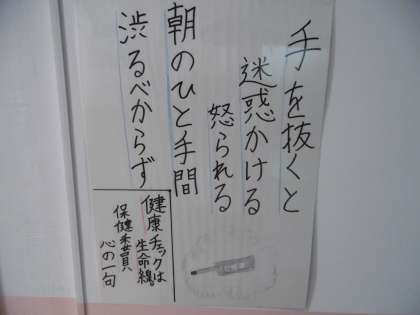 手を抜くと
迷惑かける
怒られる
朝のひと手間
渋るべからず
健康チェックは
生命線
保健委員
心の一句